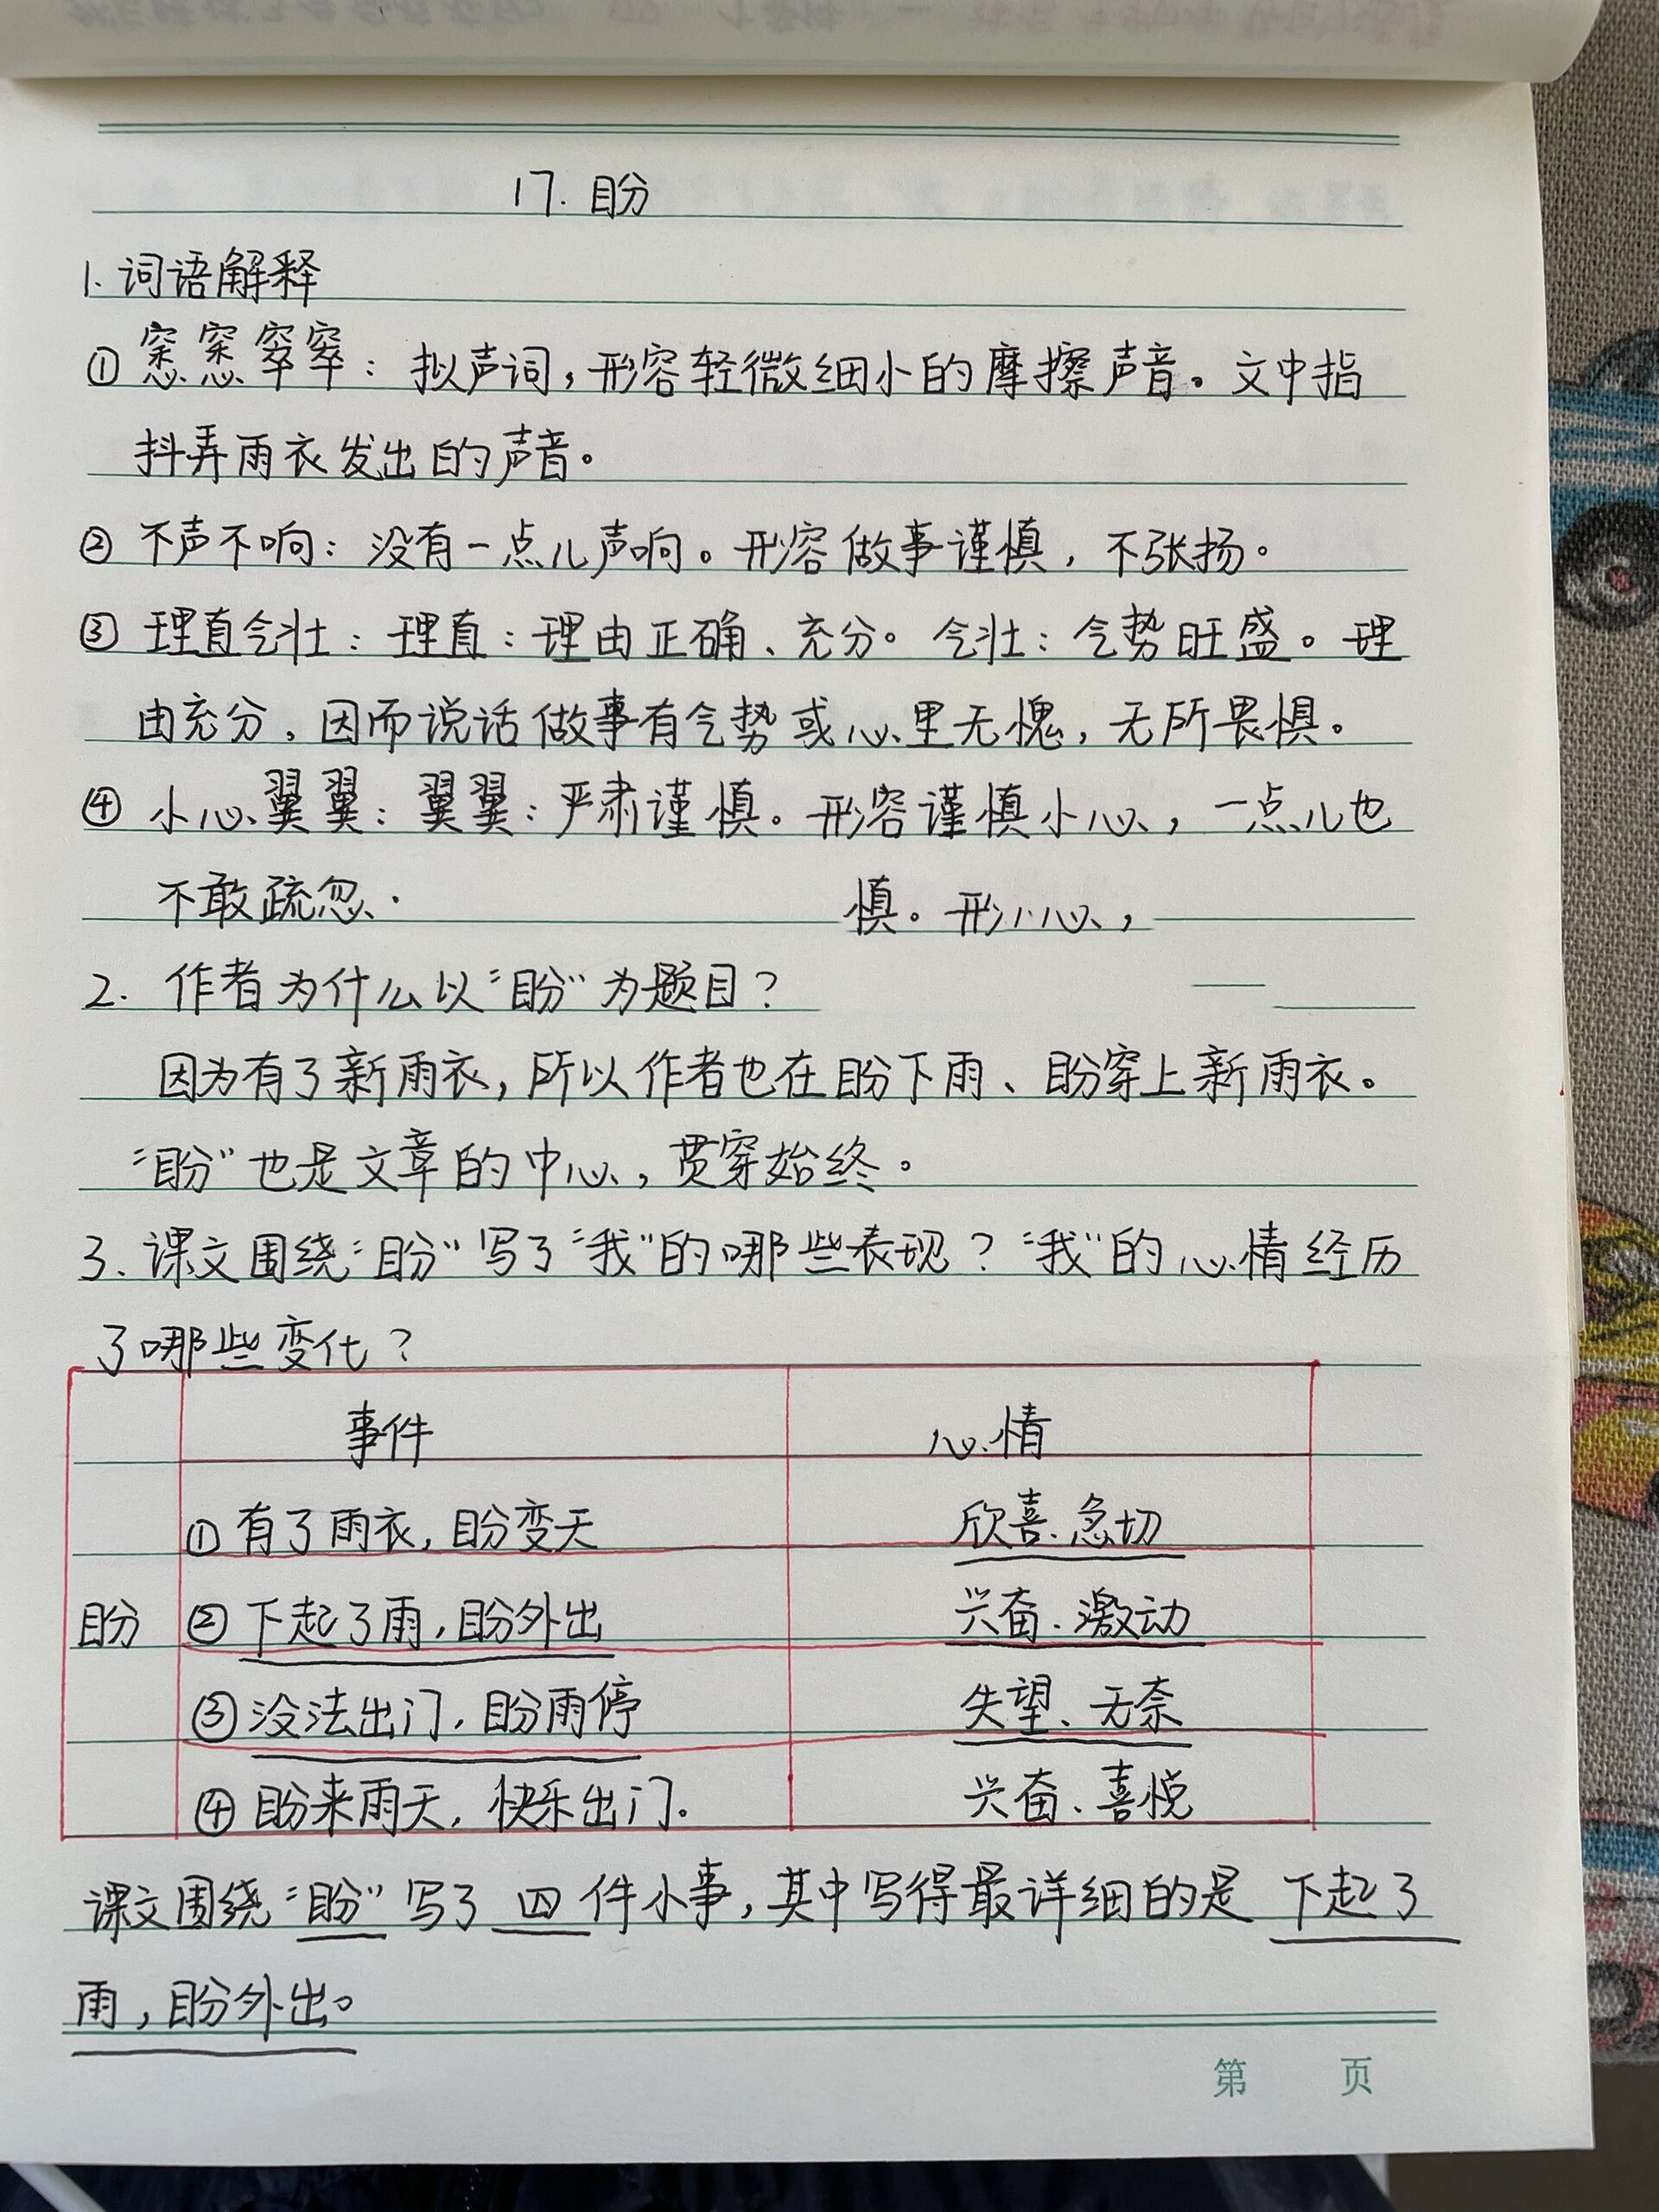 17. 盼
1. 词语解释
① 窸窸窣窣：拟声词，形容轻微细小的摩擦声音。文中指
抖弄雨衣发出的声音。
② 不声不响：没有一点儿声响。形容做事谨慎，不张扬。
③ 理直气壮：理直：理由正确、充分。气壮：气势旺盛。理
由充分，因而说话做事有气势或心里无愧，无所畏惧。
④ 小心翼翼：翼翼：严肃谨慎。形容谨慎小心，一点儿也
不敢疏忽.
慎。形小心，
2. 作者为什么以“盼”为题目？
因为有了新雨衣，所以作者也在盼下雨、盼穿上新雨衣。
“盼”也是文章的中心，贯穿始终。
3. 课文围绕“盼”写了“我”的哪些表现？“我”的心情经历
了哪些变化？
事件 心情
①有了雨衣，盼变天 欣喜.急切
盼 ②下起了雨，盼外出 兴奋.激动
③没法出门，盼雨停 失望、无奈
④盼来雨天，快乐出门. 兴奋、喜悦
课文围绕“盼”写了 四 件小事，其中写得最详细的是 下起了
雨，盼外出。
第 页